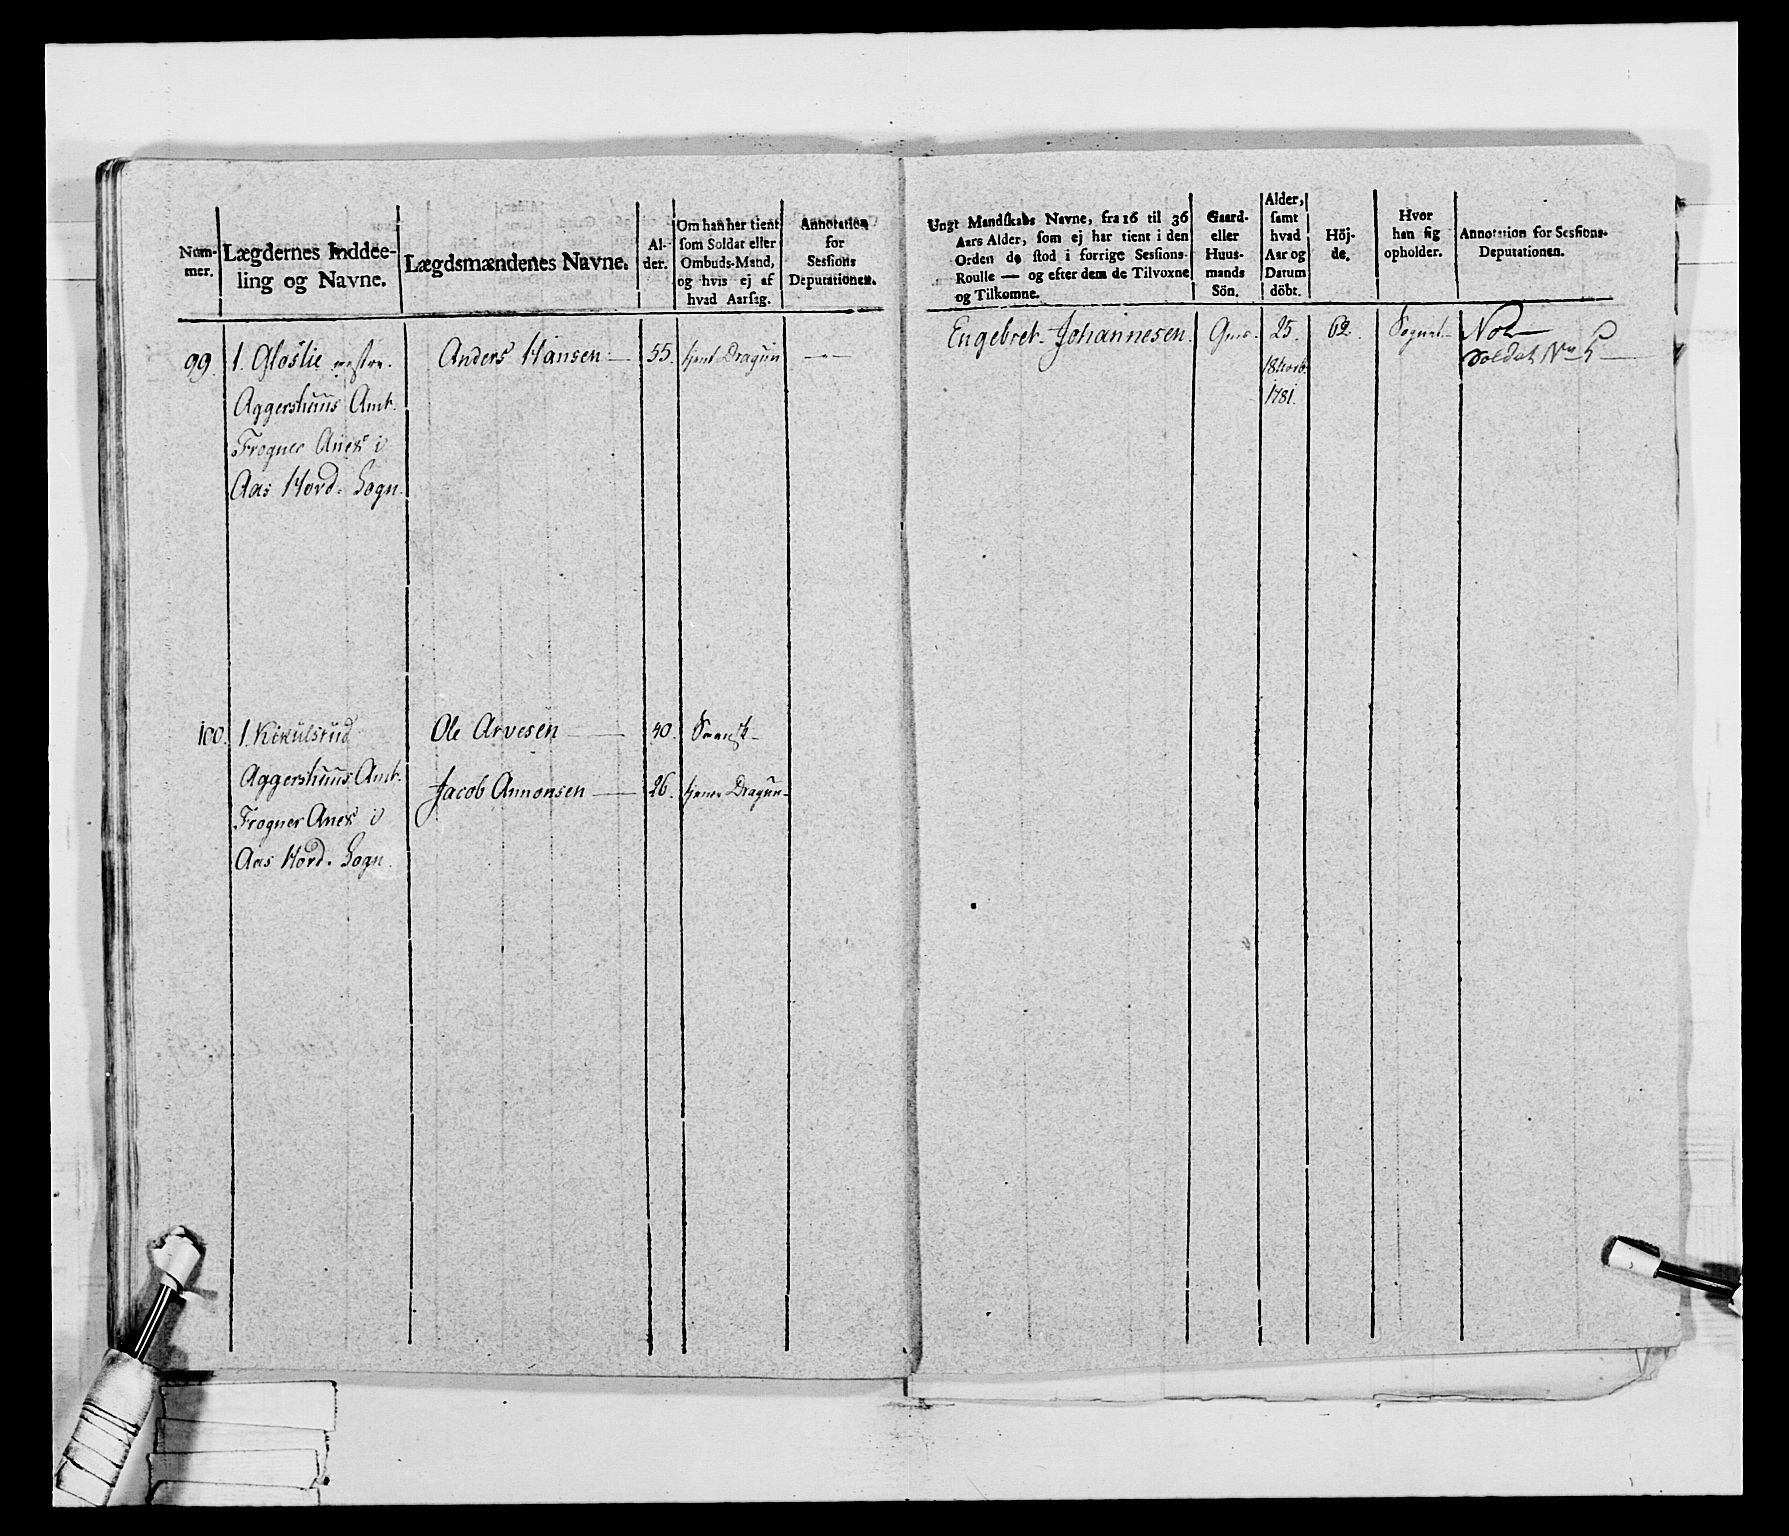 Num-
mer.
Lægdernes Inddee-
ling og Navne.
Lægdsmændenes Navne.
Al-
der.
Om han har tient
som Soldat eller
Ombuds-Mand,
og hvis ej af
hvad Aarsag.
Annotation
for
Sessions
Deputationen.
99. 1. Ofloslie westre. Anders Hansen 55. tient Dragun
Aggershuus Amt.
Frogner Anex i
Aas Hord. Sogn.
100. 1. Kikulsrud Ole Arvesen 40. Svensk
Aggershuus Amt. Jacob Amonsen 26. tiener Dragun
Frogner Anex i
Aas Hord. Sogn.
Ungt Mandskabs Navne, fra 16 til 36
Aars Alder, som ej har tient i den
Orden de stod i forrige Sessions-
Roulle — og efter dem de Tilvoxne
og Tilkomne.
Gaard-
eller
Huus-
mands
Sön.
Alder,
samt
hvad
Aar og
Datum
döbt.
Höj-
de.
Hvor
han sig
opholder.
Annotation for Sessions-
Deputationen.
Engebret Johannesen. 25. 62. Sognet Not
1781. Soldat No 5